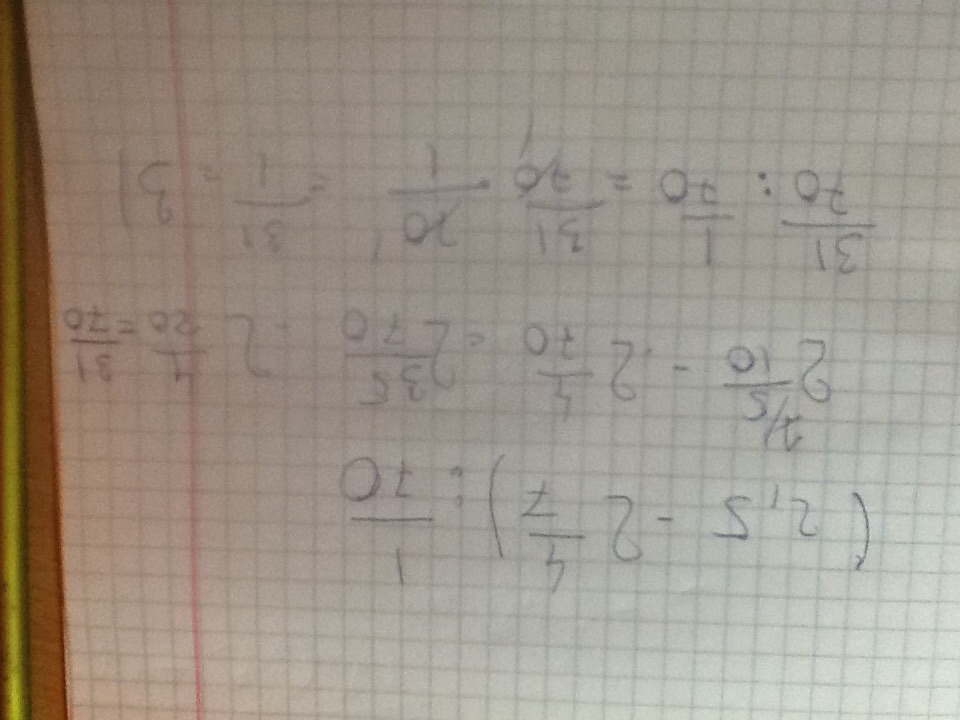 (2,5 - 2 4/7) : 1/70
2 5/10 - 2 4/70 = 2 35/70 - 2 4/70 = 31/70
31/70 : 1/70 = 31/70 · 70/1 = 31/1 = 31